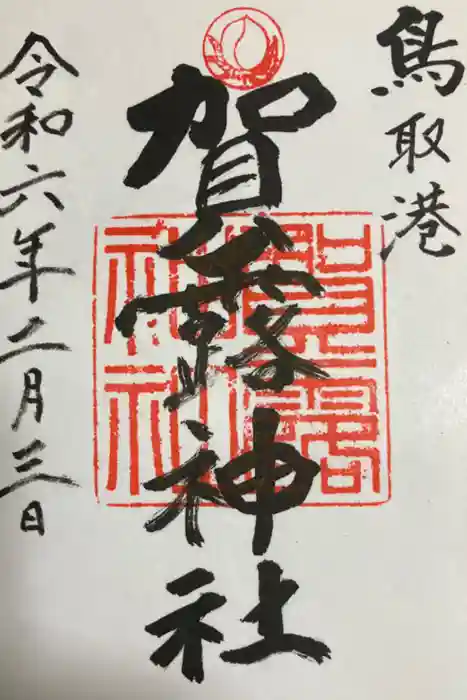 鳥取港
賀露神社
賀露神社
令和六年二月三日